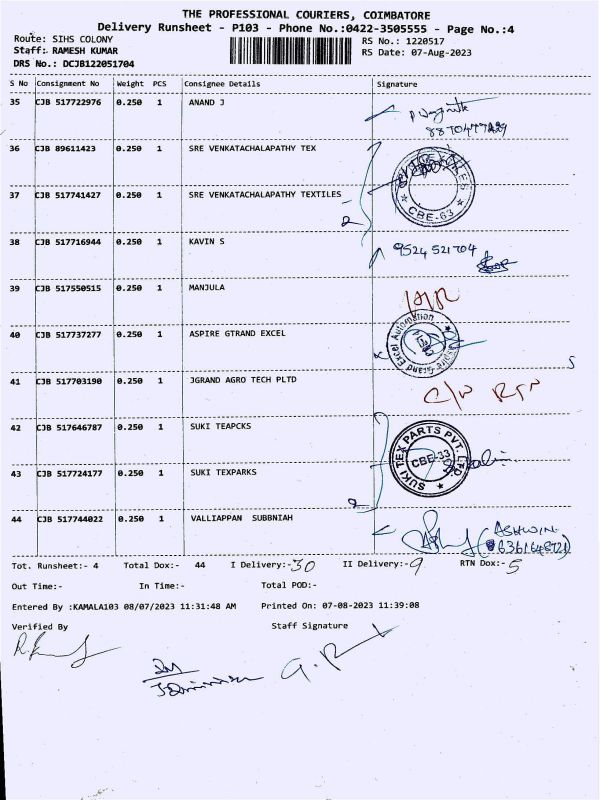 THE PROFESSIONAL COURIERS, COIMBATORE
Delivery Runsheet - P103 - Phone No.:0422-3505555 - Page No.:4
Route: SIHS COLONY
Staff: RAMESH KUMAR
DRS No.: DCJB122051704
RS No.: 1220517
RS Date: 07-Aug-2023
S No Consignment No Weight PCS Consignee Details Signature
35 CJB 517722976 0.250 1 ANAND J
36 CJB 89611423 0.250 1 SRE VENKATACHALAPATHY TEX
37 CJB 517741427 0.250 1 SRE VENKATACHALAPATHY TEXTILES
CBE-63
2
38 CJB 517716944 0.250 1 KAVIN S 9524 521704
39 CJB 517550515 0.250 1 MANJULA
40 CJB 517737277 0.250 1 ASPIRE GTRAND EXCEL
Aspire Grand Excel Automation
41 CJB 517703190 0.250 1 JGRAND AGRO TECH PLTD
5
42 CJB 517646787 0.250 1 SUKI TEAPCKS
SUKI TEX PARTS PVT. LTD.
CBE-33
43 CJB 517724177 0.250 1 SUKI TEXPARKS
2
44 CJB 517744022 0.250 1 VALLIAPPAN SUBBNIAH
ASHWIN
Tot. Runsheet:- 4 Total Dox:- 44 I Delivery:- 30 II Delivery:- 9 RTN Dox:- 5
Out Time:- In Time:- Total POD:-
Entered By :KAMALA103 08/07/2023 11:31:48 AM Printed On: 07-08-2023 11:39:08
Verified By Staff Signature